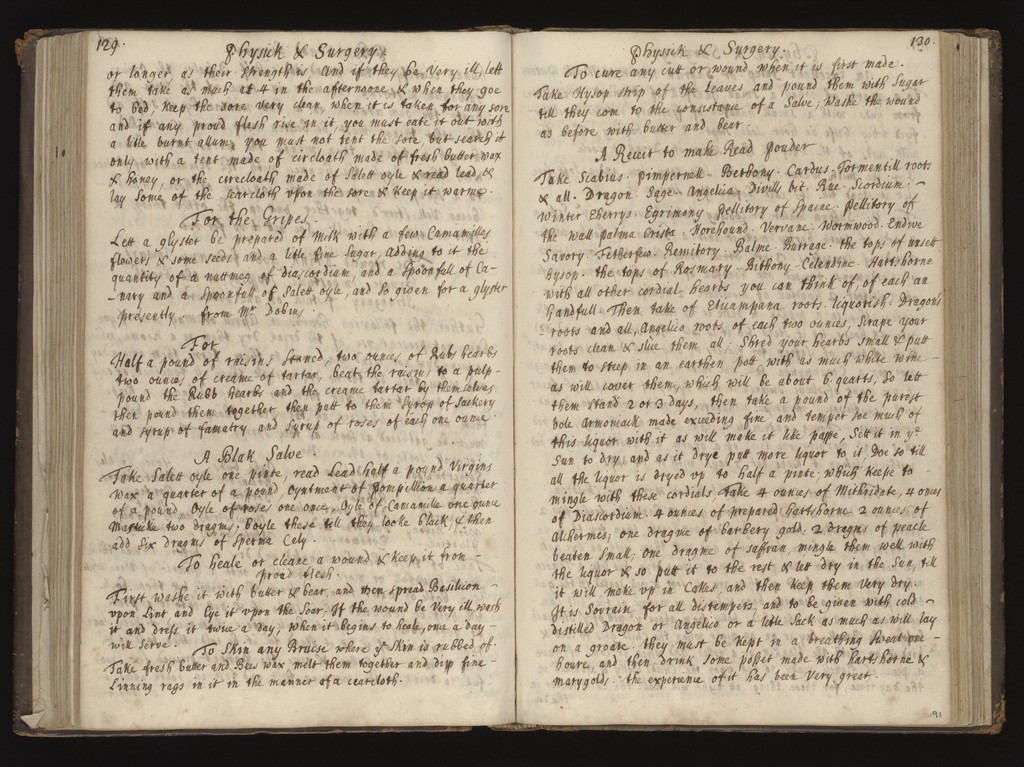 129.
Physick & Surgery.
or longer as their strength is And if they be Very ill, lett
them take as much at 4 in the afternoone & when they goe
to bed, keep the sore very clean, when it is taken for any sore
and if any proud flesh rise in it you must eate it out with
a litle burnt allum, you must not tent the sore but search it
only with a tent made of cirecloath made of fresh butter wax
& honey, or the cirecloath made of Salett oyle & read lead, &
lay some of the searcloth vpon the sore & keep it warme.
For the Gripes.
Lett a glyster be prepared of milk with a few Camamilles
flowers & some seeds and a litle fine Sugar Adding to it the
quantity of a nutmeg of Diascordium, and a spoonfull of Ca-
-nary and a spoonfull of Salett oyle, and so given for a glyster
presently. from Mr Dobins.
For
Half a pound of raisins stoned, two ounces of Rubb hearbs
two ounces of creame of tartar, beat the raisins to a pulp-
pound the Rubb hearbs and the creame tartar by themselves
then pound them together then putt to them syrop of Suckery
and syrup of fametry and syrup of roses of each one ounce
A Blak Salve.
Take Salett oyle one pinte, read Lead half a pound Virgins
wax a quarter of a pound, Oyntment of Pompillion a quarter
of a pound, Oyle of roses one once, Oyle of Camamille one ounce
Masticke two dragms, boyle these till they looke black & then
add six dragms of Sperma Cely.
To heale or cleane a wound & keep it from-
proud flesh.
First washe it with butter & bear, and then spread Basilicon-
vpon Lint and Lye it vpon the Soar, If the wound be Very ill wash
it and dress it twice a day, when it begins to heale, once a day-
will serve.
To Skin any Bruese where ye skin is rubbed of.
Take fresh butter and Bees wax melt them together and dip fine-
Linning rags in it in the manner of a cearcloth.
130.
Physick & Surgery.
To cure any cutt or wound when it is first made.
Take Hysop strip of the Leaves and pound them with Sugar
till they com to the consistance of a Salve; washe the wound
as before with butter and bear.
A Receit to make Read pouder
Take Scabius. pimpernell. Bethony. Cardus. Tormentill roots
& all. Dragon. Sage. Angelica. Divills bit. Rue. Scordium.-
Winter Cherrys. Egrimony. pellitory of Spaine. Pellitory of
the wall palma Crista. Horehound. Vervane. Wormwood. Endive
Savory. Fetherfew. Balme. Burrage. the tops of unsett
hysop. the tops of Rosmary. Bithony. Celendine. Hartshorne
with all other cordial hearbs you can think of, of each an
handfull. Then take of Elicampana roots. liquorish. Dragons
roots and all, Angelico roots of each two ounces, Scrape your
roots clean & slice them all; Shred your hearbs small & putt
them to steep in an earthen pott with as much white wine-
as will cover them, which will be about 6 quarts, So lett
them stand 2 or 3 days, then take a pound of the purest
bole Armoniack made exceeding fine and temper soe much of
this liquor with it as will make it like pappe, Sett it in ye
Sun to dry; and as it drye putt more liquor to it, Doe so till
all the liquor is dryed vp to half a pinte, which keepe to-
mingle with these cordials Take 4 ounces of Mithridate, 4 onces
of Diascordium 4 ounces of prepared hartshorne 2 ounces of
Alchermes; one dragme of barbery gold. 2 dragms of pearle
beaten small; one dragme of saffran, mingle them well with
the liquor & so putt it to the rest & lett dry in the Sun, till
it will make vp in Cakes, and then keep them Very dry.
It is Sovrain for all distempers, and to be given with cold-
distilled Dragon or Angelico or a litle Sack as much as will lay
on a groate. they must be kept in a breathing sweat one-
houre, and then drink some posset made with hartshorne &
marygolds. the experience of it has been Very great.
91